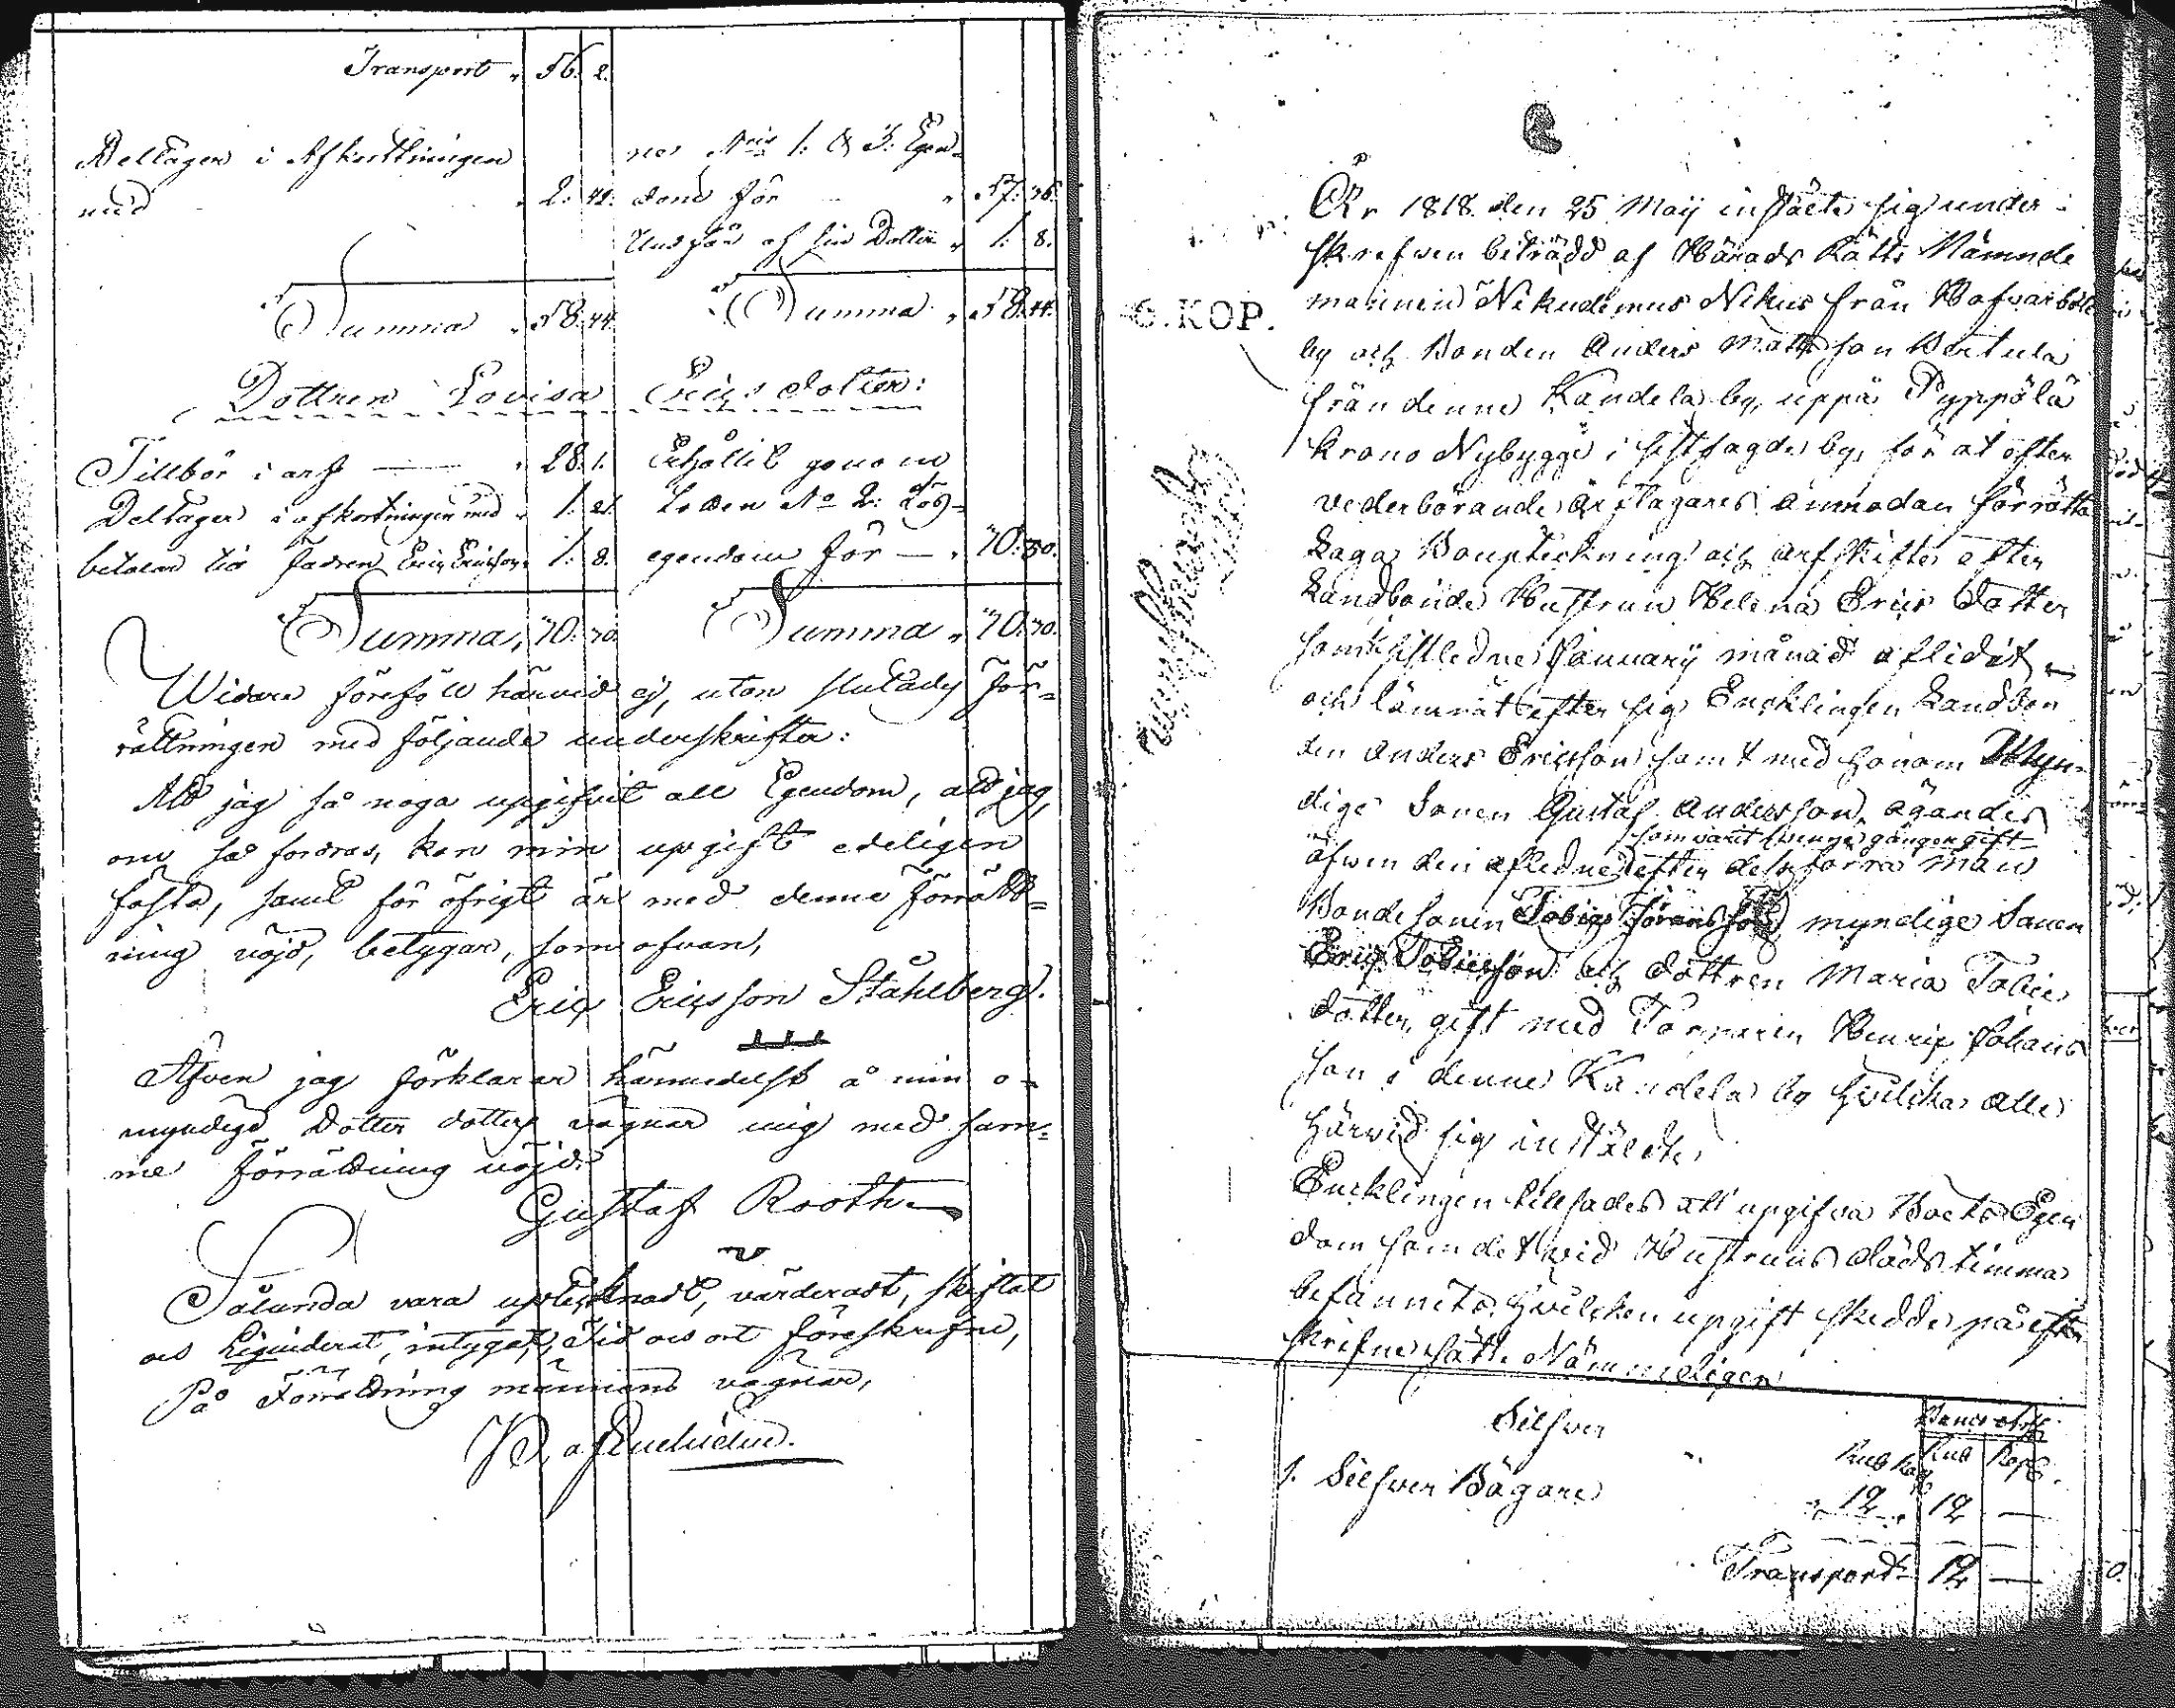 Transport " 56. 2.
Deltager i Afkortningen
med " 2. 42.
Summa " 58. 44.
nes Nris 1. & 3. Egen-
dom för " 57. 36.
Undfår af sin Dotter " 1. 8.
Summa " 58. 44.
Dottren Lovisa Erics dotter:
Tillbör i arf — " 28. 1.
Deltager i afkortningen med " 1. 21
betalar til fadren Eric Ericsson " 1. 8.
Summa, 70.
Erhållit genom
Lotten No 2. Lös-
egendom för — "
Summa "
Widare föreföll härvid ej, utan slutades för-
rättningen med följande underskrifter:
Att jag så noga upgifvit all Egendom, att jag,
om så fordras, kan min upgift edeligen
fästa, samt för öfrigt är med denna förrätt-
ning nöjd, betygar, som ofvan,
Eric Ericsson Ståhlberg.
Äfven jag förklarar härmedelst å min o-
myndiga Dotter dotters vägnar mig med sam-
ma förrättning nöjd.
Gustaf Rooth
Sålunda vara uptecknadt, värderadt, skiftat
och Liquiderat, intygar, Tid och ort föreskrifne,
På Förrättning männens vägnar,
År 1818. den 25 Maij instälte sig under-
skrefven biträdd af Härads Rätts Nämnde
mannen Nikudemus Nikus från Hafvarböle
by och Bonden Anders Mattsson Wertula
från denne Kandela by, uppå Pyppölä
Krono Nybygge i sistsagde by, för at efter
vederbörande arftagares anmodan förrätta
Laga Bouptekning och arfskifte efter
Landbonde Hustrun Helena Erics Dotter
som sistledne January månad aflidit
och lämnat efter sig Encklingen Landbon
den Anders Ericsson samt med honom Myn-
dige Sonen Gustaf Andersson, ägandes
som varit tvenne gånger gift
äfven den afledne efter dess förra man
Bondesonen Tobias Göransson myndige Sonen
Eric Tobiesson och dottren Maria Tobies
dotter, gift med Torparen Henric Johans
son i denne Kandela by hvilcka alle
härvid sig instälte.
Encklingen tillsades att upgifva Boets Egen
dom som det vid Hustruns döds timma
befunnits, hvilcken upgift skedde på efter
skrifne sätt. Nämmeligen
6.KOP.
Silfver
Banco Ass
Rub Kop Rub Kop.
1. Silfver Bägare " 12 " 12 —
Transport 12 —